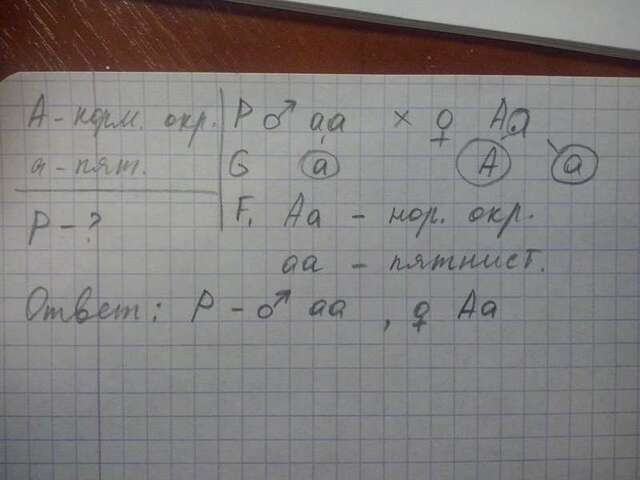 А - норм. окр.
а - пят.
P - ?
P ♂ аа × ♀ Аа
G а А а
F₁ Аа - нор. окр.
аа - пятнист.
Ответ: P - ♂ аа , ♀ Аа